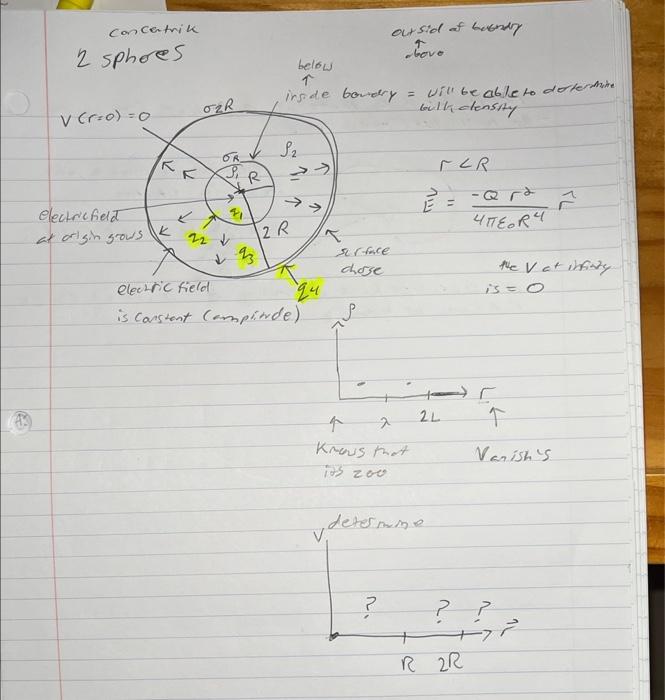 concentrik
2 sphores
outsid of boundry
↑
above
below
↑
inside boundry = will be able to determine
bulk density
σ2R
V(r=0) = 0
σR
ρ2
ρ1
R
r < R
E⃗ = -Q r² / 4πε0R⁴ r̂
electric field
at origin grows
q1
q2
2R
q3
surface
charge
q4
the V at infinity
is = 0
electric field
is constant (amplitude)
ρ
r
λ
2L
Knows that
its zoo
Vanish's
determine
V
? ? ?
r⃗
R 2R